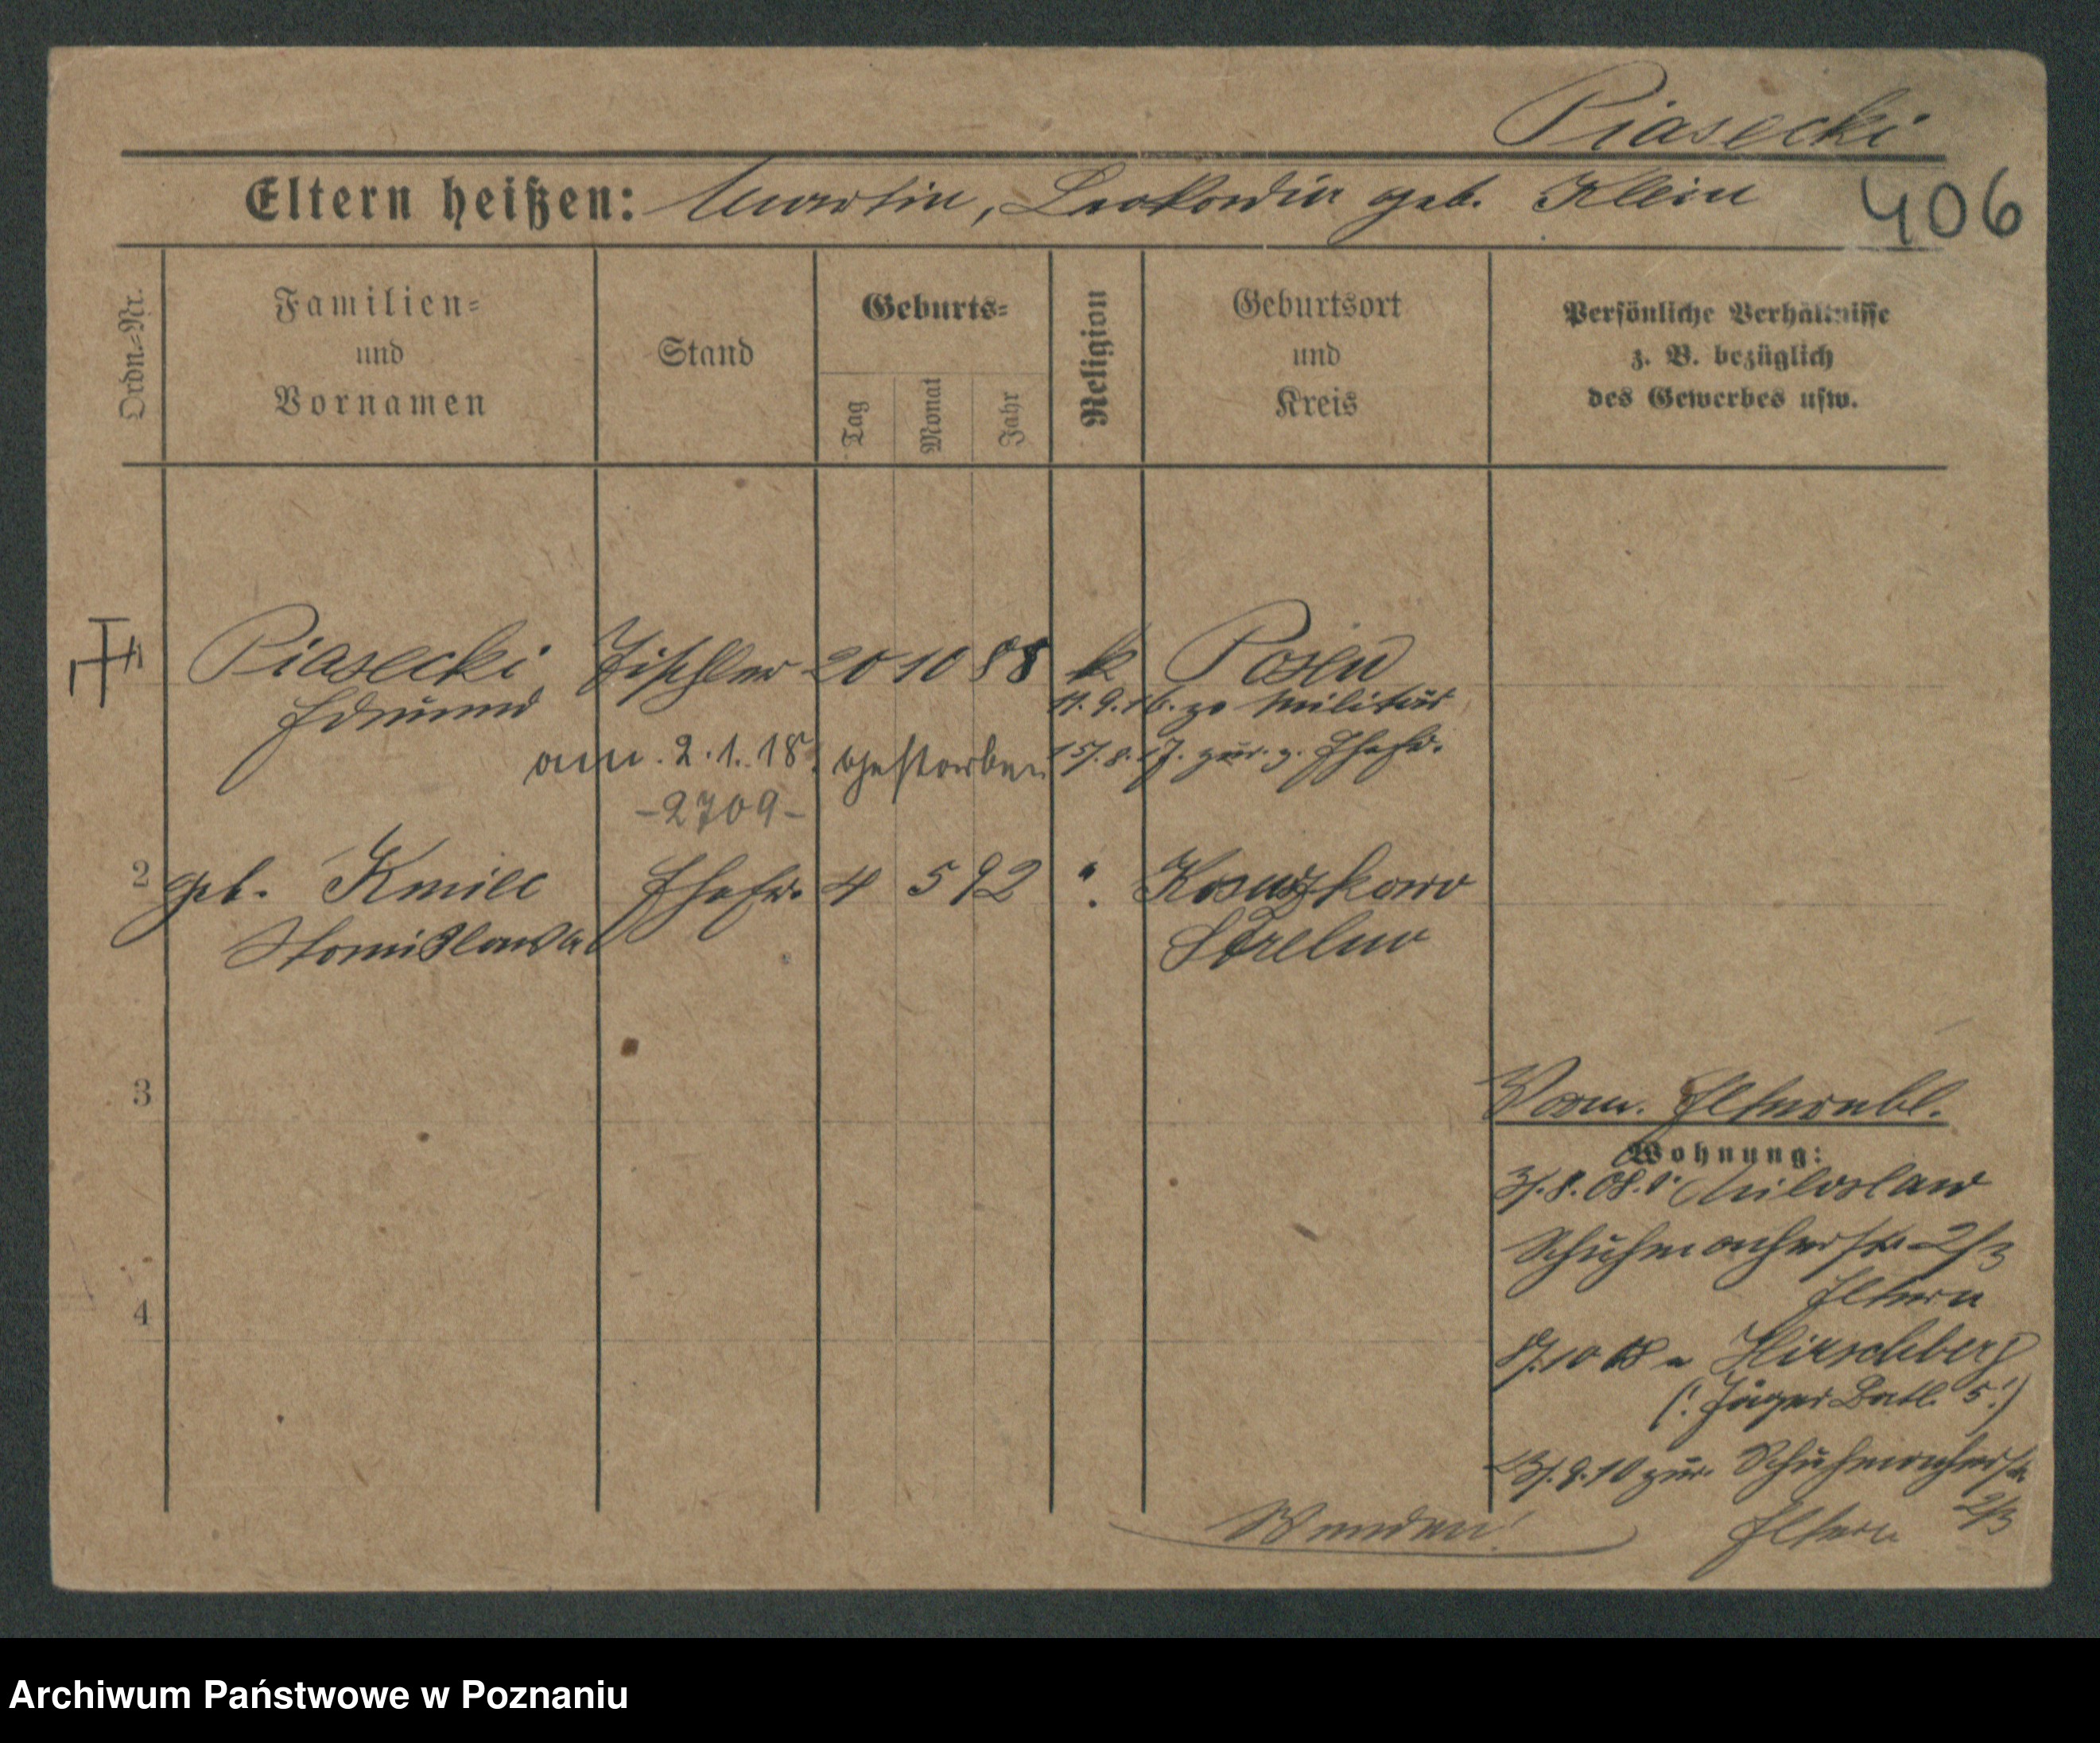 Piasecki
Eltern heißen: Martin, Leokadia geb. Klein 406
Ordn.-Nr.
Familien-
und
Vornamen
Stand
Geburts-
Tag
Monat
Jahr
Religion
Geburtsort
und
Kreis
Persönliche Verhältnisse
z. B. bezüglich
des Gewerbes usw.
1 Piasecki Tischler 20 10 88 k Posen
Edmund
11.9.16. zo Militär
am. 2.1.18. gestorben 15/.8.17. zur. z. Ehefr.
-2709-
2 geb. Kmiec Ehefr. 4 5 92 " Kosuszkowo
Stanislawa Strelno
3
Vorm. Elternbl.
Wohnung:
3/.8.08. v. Miloslaw
Schuhmacherstr. 2/3
Eltern
4
8/.10 08 n Hirschberg
(: Jäger Batl. 5 :)
23/.9.10 zur. Schuhmacherstr
2/3
Eltern
Wenden!
Archiwum Państwowe w Poznaniu